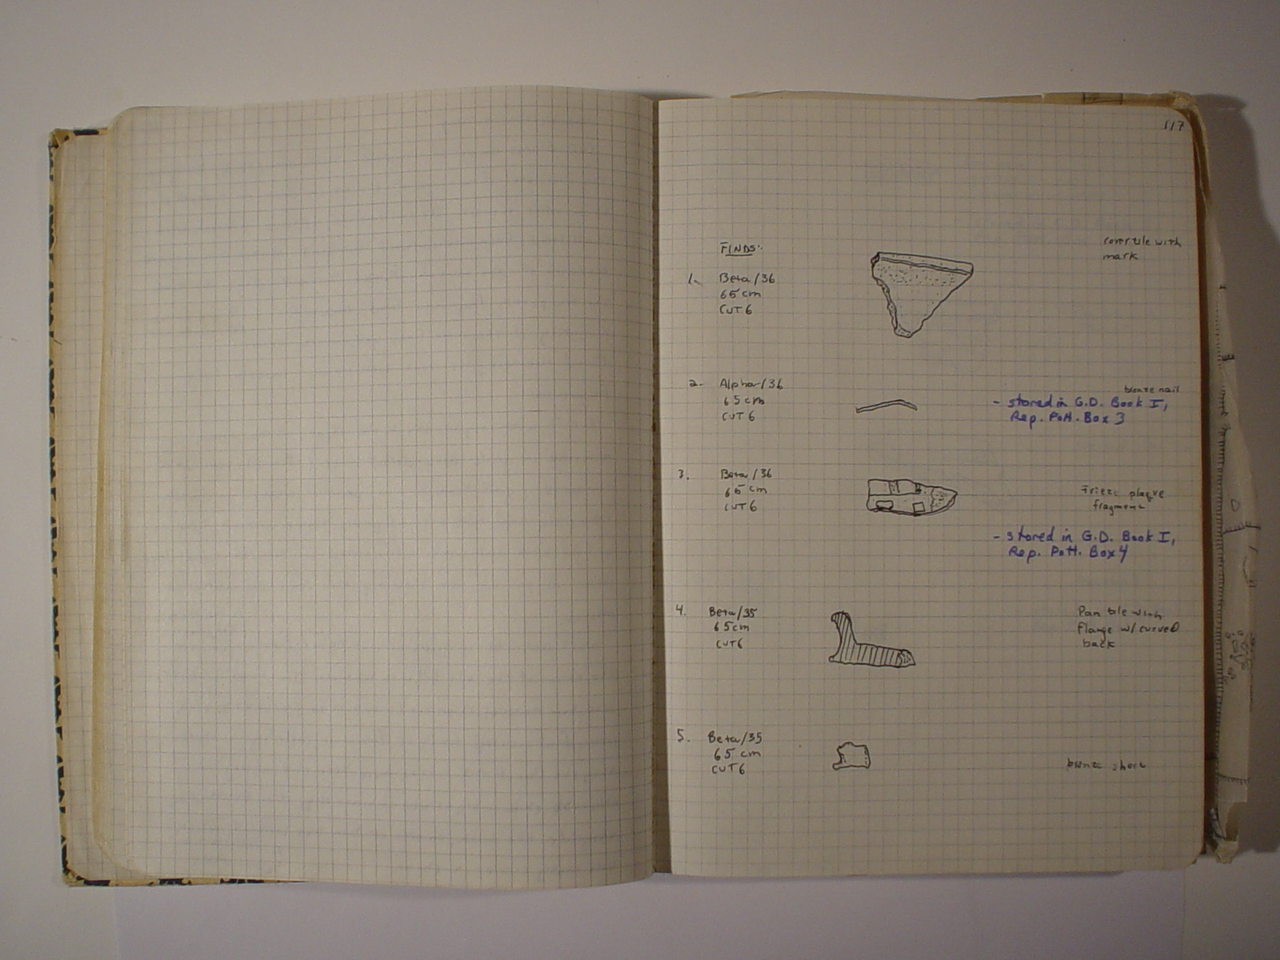 117
FINDS:
1. Beta/36
65 cm
CUT 6
cover tile with
mark
2. Alpha/36
65 cm
CUT 6
bronze nail
- stored in G.D. Book I,
Rep. Pott. Box 3
3. Beta/36
65 cm
CUT 6
Frieze plaque
fragment
- stored in G.D. Book I,
Rep. Pott. Box 4
4. Beta/35
65 cm
CUT 6
Pan tile with
Flange w/ curved
back
5. Beta/35
65 cm
CUT 6
bronze sheet